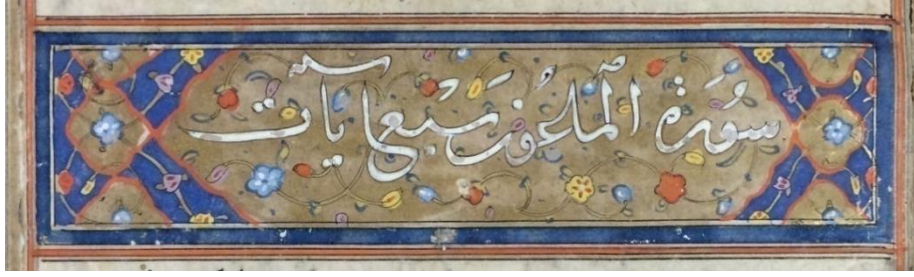 سورة الماعون سبع آيات